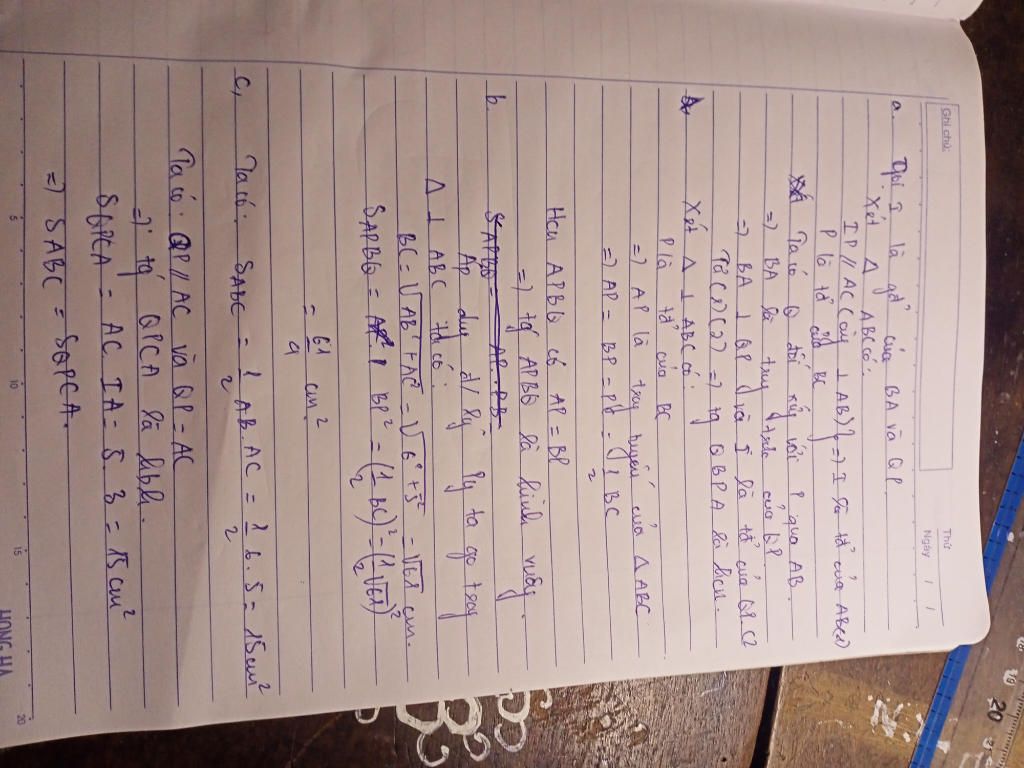 Ghi chú:
Thứ
Ngày / /
a. Gọi I là gđ của BA và QP.
Xét Δ ABC có:
IP // AC (cùng ⊥ AB) } => I là tđ của AB (1)
P là tđ của BC
Ta có Q đối xứng với P qua AB.
=> BA là trung trực của QP.
=> BA ⊥ QP và I là tđ của QP (2
Từ (1) (2) => tg QBPA là hcn.
Xét Δ ⊥ ABC có:
P là tđ của BC
=> AP là trung tuyến của Δ ABC
=> AP = BP = PC = 1/2 BC
Hcn APBQ có AP = BP
=> tg APBQ là hình vuông.
b. SAPBQ = AP. PB
Áp dụng đ/ lý Py ta go trong
Δ ⊥ ABC ta có:
BC = √AB² + AC² = √6² + 5² = √61 cm.
SAPBQ = BP² = (1/2 BC)² = (1/2 √61)²
= 61/4 cm²
c, Ta có: SABC = 1/2 AB. AC = 1/2 6. 5 = 15cm²
Ta có: QP // AC và QP = AC
=> tg QPCA là hbh.
SQPCA = AC. IA = 5. 3 = 15 cm²
=> SABC = SQPCA.
5 10 15 20
HONG HA
20